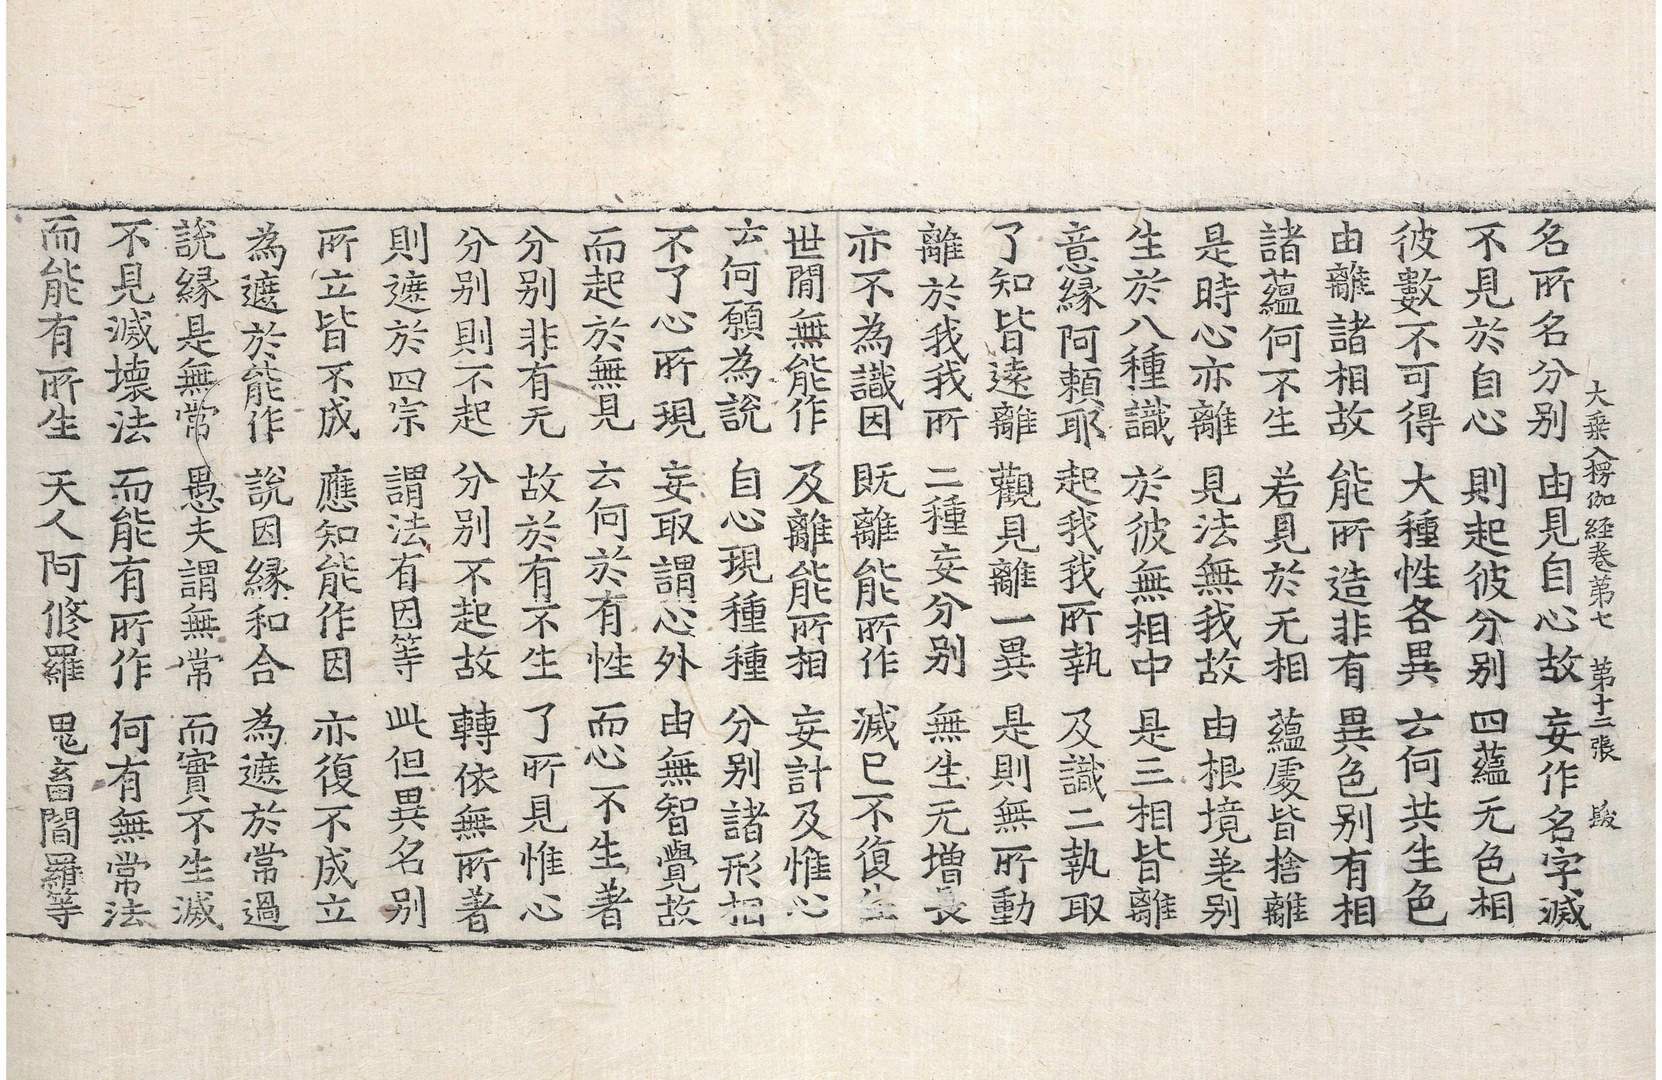 大乘入楞伽經卷第七 第十二張 毀
名所名分別 由見自心故 妄作名字滅
不見於自心 則起彼分別 四蘊无色相
彼數不可得 大種性各異 云何共生色
由離諸相故 能所造非有 異色別有相
諸蘊何不生 若見於无相 蘊處皆捨離
是時心亦離 見法無我故 由根境差別
生於八種識 於彼無相中 是三相皆離
意縁阿頼耶 起我我所執 及識二執取
了知皆遠離 觀見離一異 是則無所動
離於我我所 二種妄分別 無生无增長
亦不為識因 既離能所作 滅已不復生
世間無能作 及離能所相 妄計及惟心
云何願為說 自心現種種 分別諸形相
不了心所現 妄取謂心外 由無智覺故
而起於無見 云何於有性 而心不生著
分別非有无 故於有不生 了所見惟心
分別則不起 分別不起故 轉依無所著
則遮於四宗 謂法有因等 此但異名別
所立皆不成 應知能作因 亦復不成立
為遮於能作 說因縁和合 為遮於常過
說縁是無常 愚夫謂無常 而實不生滅
不見滅壞法 而能有所作 何有無常法
而能有所生 天人阿修羅 鬼畜閻羅等